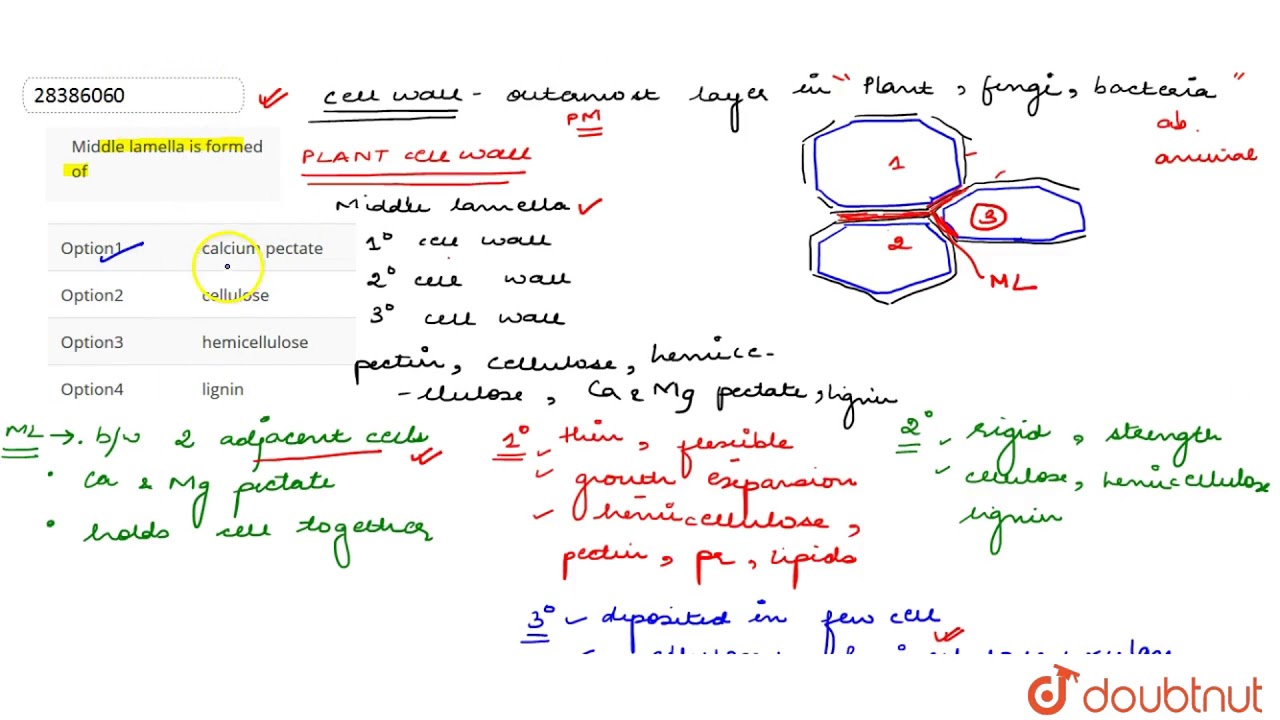 28386060
Middle lamella is formed
of
Option1 calcium pectate
Option2 cellulose
Option3 hemicellulose
Option4 lignin
cell wall - outermost layer in " Plant, fungi, bacteria "
PM
ab.
animal
PLANT cell wall
Middle lamella
1° cell wall
2° cell wall
3° cell wall
pectin, cellulose, hemice-
-llulose, Ca & Mg pectate, lignin
1
2
3
ML
ML → . b/w 2 adjacent cells
• Ca & Mg pectate
• holds cell together
1° thin, flexible
growth expansion
hemicellulose,
pectin, pr, lipids
2° rigid, strength
cellulose, hemicellulose
lignin
3° deposited in few cell
doubtnut